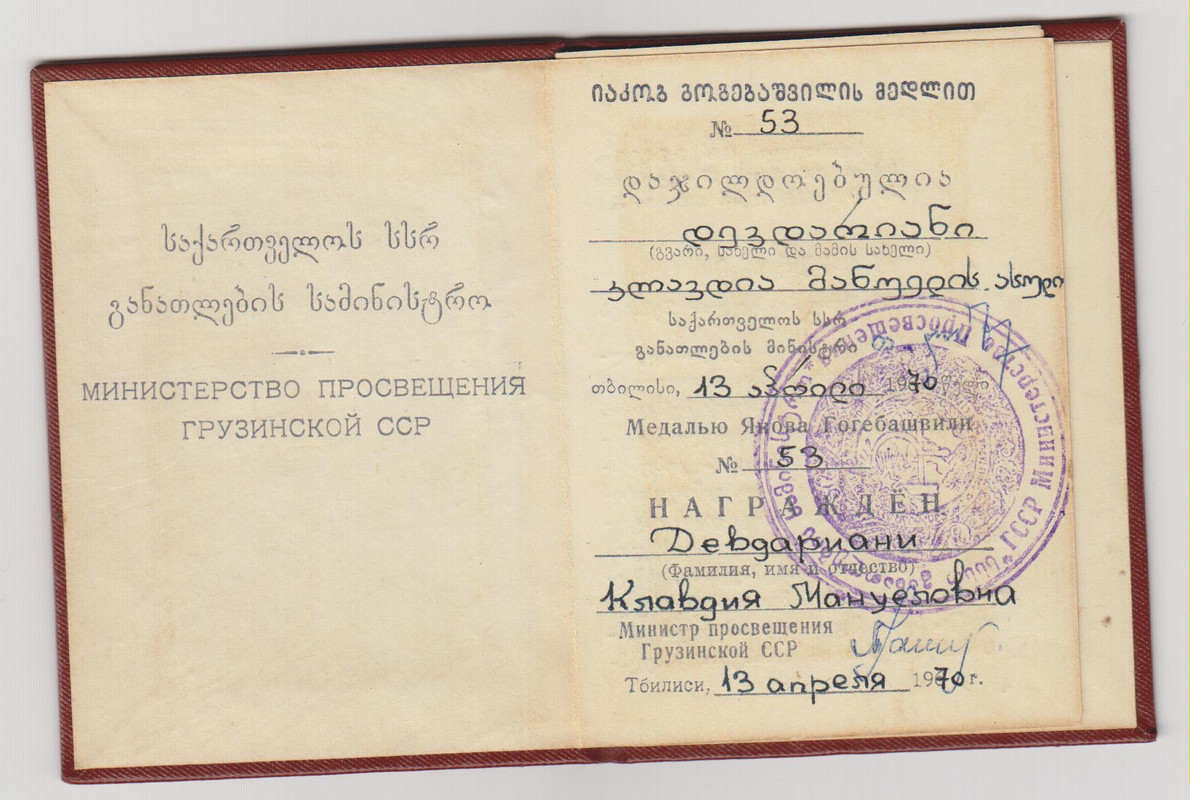 საქართველოს სსრ
განათლების სამინისტრო
МИНИСТЕРСТВО ПРОСВЕЩЕНИЯ
ГРУЗИНСКОЙ ССР
იაკობ გოგებაშვილის მედლით
№ 53
დაჯილდოებულია
დევდარიანი
(გვარი, სახელი და მამის სახელი)
კლავდია მანუელის ასული
საქართველოს სსრ
განათლების მინისტრი
თბილისი, 13 აპრილი 1970 წელი
Медалью Якова Гогебашвили
№ 53
НАГРАЖДЁН
Девдариани
(Фамилия, имя и отчество)
Клавдия Мануеловна
Министр просвещения
Грузинской ССР
Тбилиси, 13 апреля 1970 г.
Министерство Просвещения ГССР